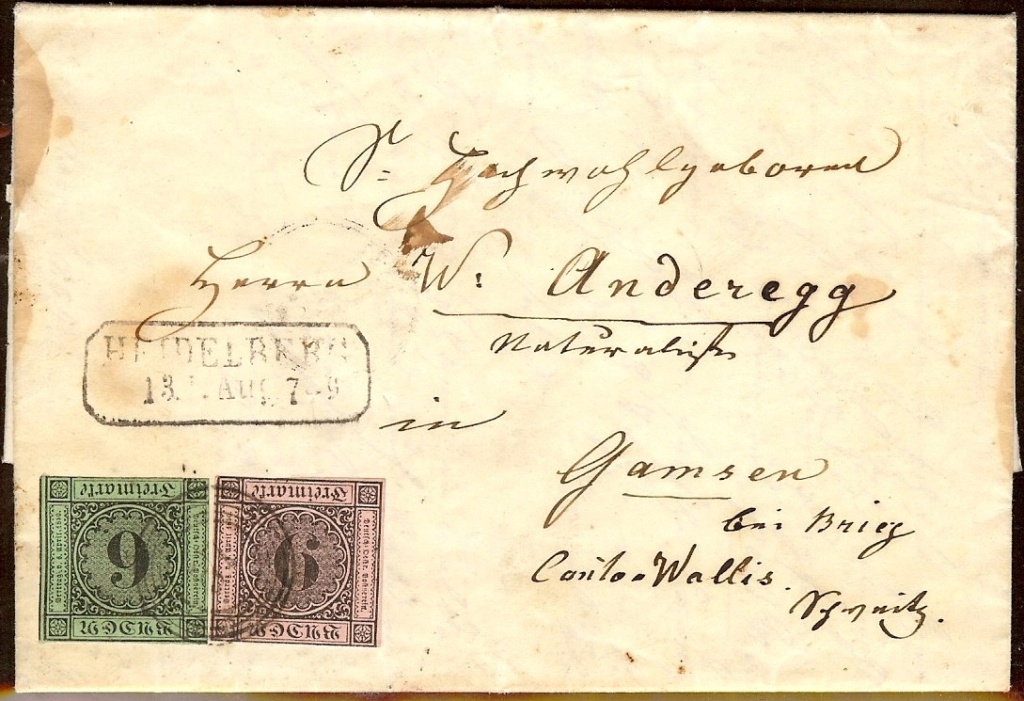 Sr Hochwohlgeboren
Herrn W: Anderegg
Naturalist
HEIDELBERG
13. Aug 7-9
in
Gamsen
bei Brieg
Canton Wallis
Schweitz.
Freimarke
9
BADEN
Freimarke
6
BADEN